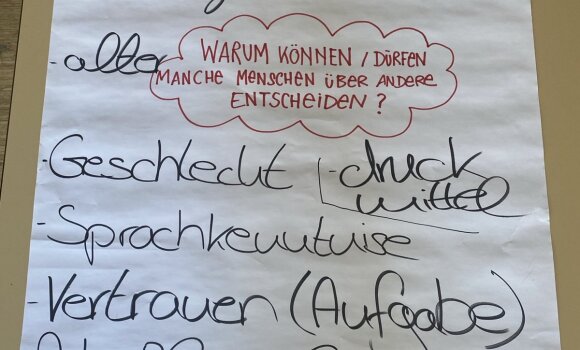 - alter
WARUM KÖNNEN / DÜRFEN
MANCHE MENSCHEN ÜBER ANDERE
ENTSCHEIDEN ?
- Geschlecht
- druck
mittel
- Sprachkenntnise
- Vertrauen (Aufgabe)